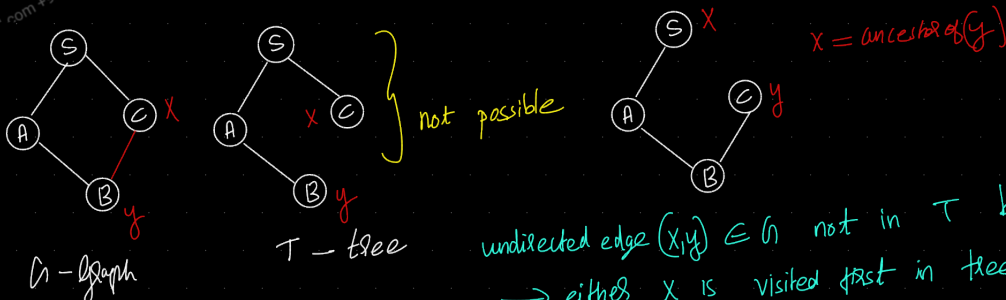 .com
S
A
C x
B
y
G - Graph
S
A
x C
B y
T - tree
} not possible
S x
A
C y
B
x = ancestor of (y)
undirected edge (x,y) ∈ G not in T
→ either x is visited first in tree